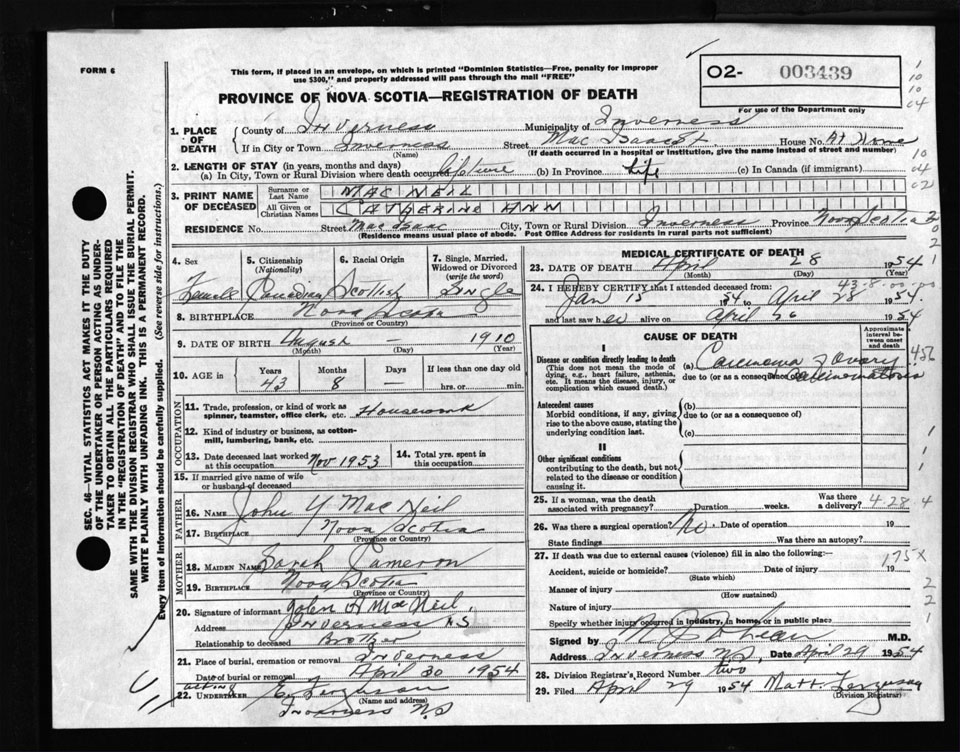 FORM 6
This form, if placed in an envelope, on which is printed "Dominion Statistics—Free, penalty for improper
use $300," and properly addressed will pass through the mail "FREE"
O2- 003439
For use of the Department only
PROVINCE OF NOVA SCOTIA—REGISTRATION OF DEATH
1. PLACE OF DEATH
County of Inverness Municipality of Inverness
If in City or Town Inverness Street Mac Isaac St House No. At Home
(Name) (If death occurred in a hospital or institution, give the name instead of street and number)
2. LENGTH OF STAY (in years, months and days)
(a) In City, Town or Rural Division where death occurred lifetime (b) In Province Life (c) In Canada (if immigrant)
3. PRINT NAME OF DECEASED
Surname or Last Name MAC NEIL
All Given or Christian Names CATHERINE ANN
RESIDENCE No. Street Mac Isaac City, Town or Rural Division Inverness Province Nova Scotia
(Residence means usual place of abode. Post Office Address for residents in rural parts not sufficient)
4. Sex 5. Citizenship (Nationality) 6. Racial Origin 7. Single, Married, Widowed or Divorced (write the word)
Female Canadian Scottish Single
8. BIRTHPLACE Nova Scotia
(Province or Country)
9. DATE OF BIRTH August — 1910
(Month) (Day) (Year)
10. AGE in Years Months Days If less than one day old
43 8 — hrs. or min.
OCCUPATION
11. Trade, profession, or kind of work as spinner, teamster, office clerk, etc. Housework
12. Kind of industry or business, as cotton-mill, lumbering, bank, etc.
13. Date deceased last worked at this occupation Nov 1953 14. Total yrs. spent in this occupation
15. If married give name of wife or husband of deceased
FATHER
16. NAME John Y MacNeil
17. Birthplace Nova Scotia
(Province or Country)
MOTHER
18. MAIDEN NAME Sarah Cameron
19. BIRTHPLACE Nova Scotia
(Province or Country)
20. Signature of informant John A MacNeil,
Address Inverness NS
Relationship to deceased Brother
21. Place of burial, cremation or removal Inverness
Date of burial or removal April 30 1954
acting
22. UNDERTAKER E. Ferguson
(Name and address)
Inverness N.S
MEDICAL CERTIFICATE OF DEATH
23. DATE OF DEATH April 28 1954
(Month) (Day) (Year)
24. I HEREBY CERTIFY that I attended deceased from:
Jan 15 1954 to April 28 1954.
and last saw her alive on April 26 1954
CAUSE OF DEATH
Approximate interval between onset and death
I
Disease or condition directly leading to death
(This does not mean the mode of dying, e.g., heart failure, asthenia, etc. It means the disease, injury, or complication which caused death.
(a) Carcinoma of Ovary 456
due to (or as a consequence of) Carcinomatosis
Antecedent causes
Morbid conditions, if any, giving rise to the above cause, stating the underlying condition last.
(b)
due to (or as a consequence of)
(c)
II
Other significant conditions
contributing to the death, but not related to the disease or condition causing it.
25. If a woman, was the death associated with pregnancy? Duration weeks. Was there a delivery? 4-28-4
26. Was there a surgical operation? No Date of operation 19
State findings Was there an autopsy?
27. If death was due to external causes (violence) fill in also the following:— 175x
Accident, suicide or homicide? Date of injury 19
(State which)
Manner of injury
(How sustained)
Nature of injury
Specify whether injury occurred in industry, in home, or in public place
Signed by M.D.
Address Inverness NS Date April 29 1954
28. Division Registrar's Record Number two
29. Filed April 29 1954 Matt. Ferguson
(Division Registrar)
SEC. 46—VITAL STATISTICS ACT MAKES IT THE DUTY
OF THE UNDERTAKER OR PERSON ACTING AS UNDER-
TAKER TO OBTAIN ALL THE PARTICULARS REQUIRED
IN THE "REGISTRATION OF DEATH" AND TO FILE THE
SAME WITH THE DIVISION REGISTRAR WHO SHALL ISSUE THE BURIAL PERMIT.
WRITE PLAINLY WITH UNFADING INK. THIS IS A PERMANENT RECORD.
Every item of information should be carefully supplied. (See reverse side for instructions.)